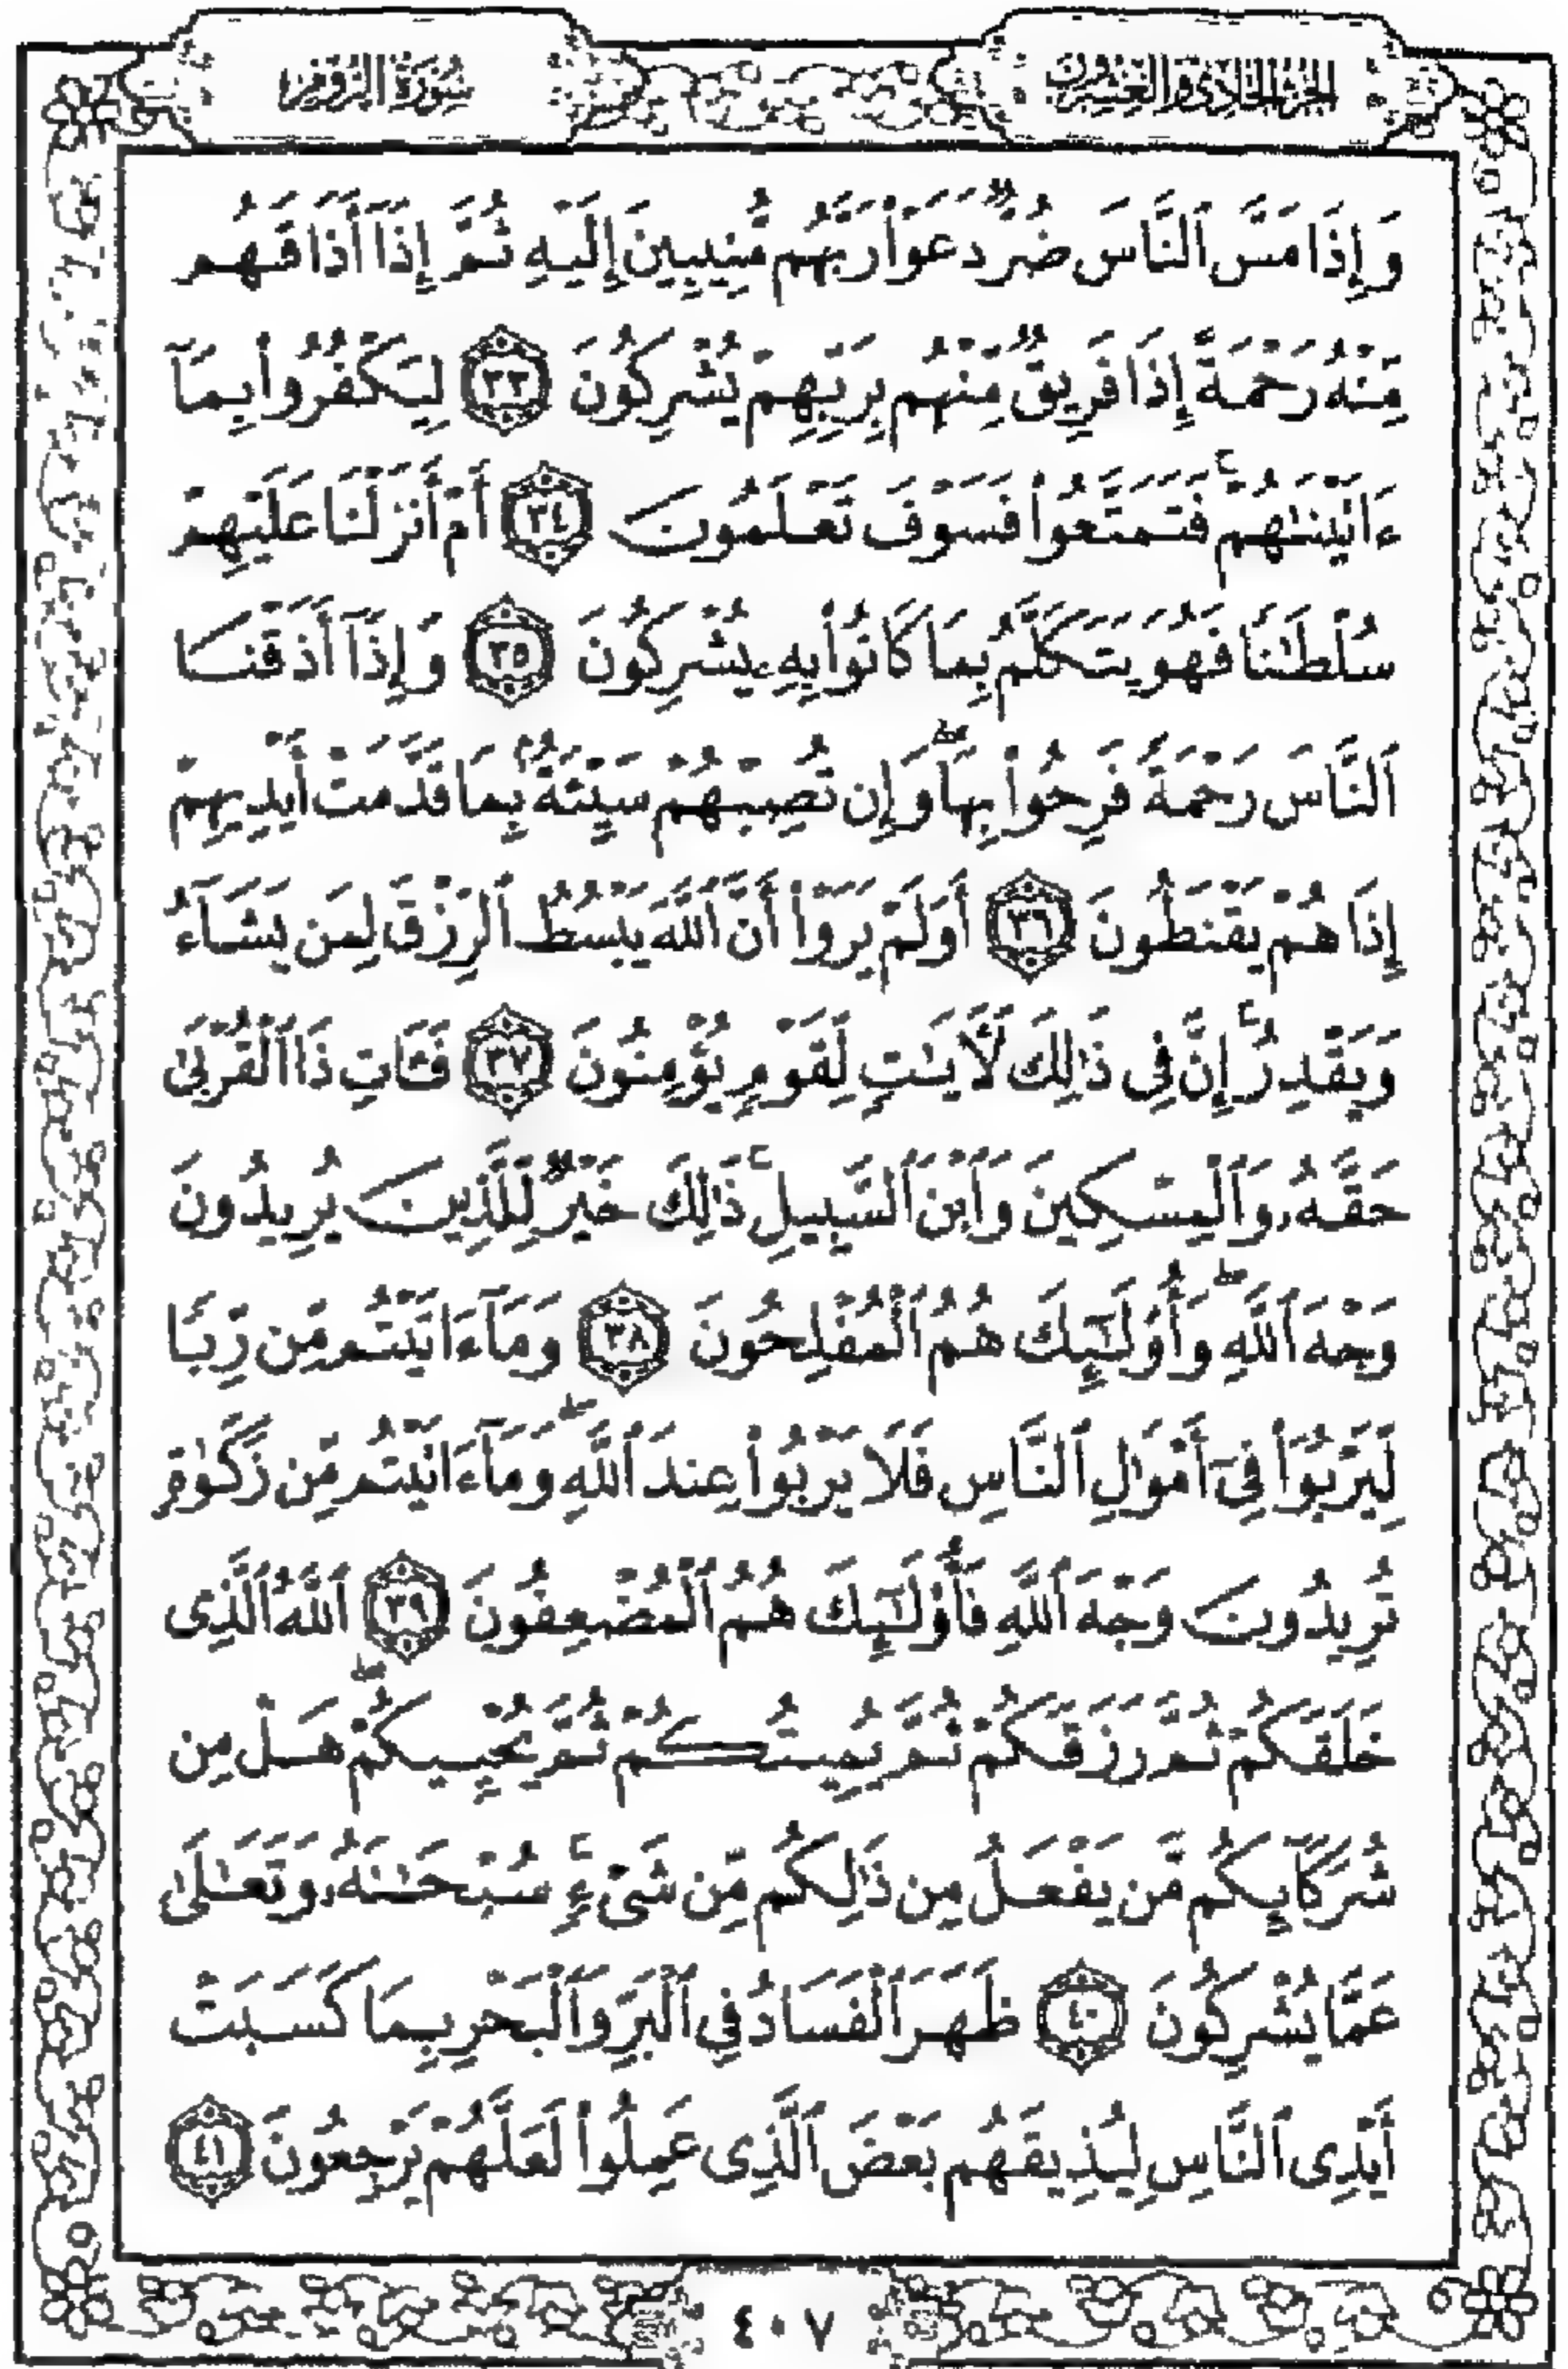 الجزء الحادي والعشرون
سورة الروم
وَإِذَا مَسَّ ٱلنَّاسَ ضُرٌّ دَعَوْا۟ رَبَّهُم مُّنِيبِينَ إِلَيْهِ ثُمَّ إِذَآ أَذَاقَهُم
مِّنْهُ رَحْمَةً إِذَا فَرِيقٌ مِّنْهُم بِرَبِّهِمْ يُشْرِكُونَ ٣٣ لِيَكْفُرُوا۟ بِمَآ
ءَاتَيْنَٰهُمْ ۚ فَتَمَتَّعُوا۟ فَسَوْفَ تَعْلَمُونَ ٣٤ أَمْ أَنزَلْنَا عَلَيْهِمْ
سُلْطَٰنًا فَهُوَ يَتَكَلَّمُ بِمَا كَانُوا۟ بِهِۦ يُشْرِكُونَ ٣٥ وَإِذَآ أَذَقْنَا
ٱلنَّاسَ رَحْمَةً فَرِحُوا۟ بِهَا ۖ وَإِن تُصِبْهُمْ سَيِّئَةٌۢ بِمَا قَدَّمَتْ أَيْدِيهِمْ
إِذَا هُمْ يَقْنَطُونَ ٣٦ أَوَلَمْ يَرَوْا۟ أَنَّ ٱللَّهَ يَبْسُطُ ٱلرِّزْقَ لِمَن يَشَآءُ
وَيَقْدِرُ ۚ إِنَّ فِى ذَٰلِكَ لَءَايَٰتٍ لِّقَوْمٍ يُؤْمِنُونَ ٣٧ فَـَٔاتِ ذَا ٱلْقُرْبَىٰ
حَقَّهُۥ وَٱلْمِسْكِينَ وَٱبْنَ ٱلسَّبِيلِ ۚ ذَٰلِكَ خَيْرٌ لِّلَّذِينَ يُرِيدُونَ
وَجْهَ ٱللَّهِ ۖ وَأُو۟لَٰٓئِكَ هُمُ ٱلْمُفْلِحُونَ ٣٨ وَمَآ ءَاتَيْتُم مِّن رِّبًا
لِّيَرْبُوَا۟ فِىٓ أَمْوَٰلِ ٱلنَّاسِ فَلَا يَرْبُوا۟ عِندَ ٱللَّهِ ۖ وَمَآ ءَاتَيْتُم مِّن زَكَوٰةٍ
تُرِيدُونَ وَجْهَ ٱللَّهِ فَأُو۟لَٰٓئِكَ هُمُ ٱلْمُضْعِفُونَ ٣٩ ٱللَّهُ ٱلَّذِى
خَلَقَكُمْ ثُمَّ رَزَقَكُمْ ثُمَّ يُمِيتُكُمْ ثُمَّ يُحْيِيكُمْ ۖ هَلْ مِن
شُرَكَآئِكُم مَّن يَفْعَلُ مِن ذَٰلِكُم مِّن شَىْءٍ ۚ سُبْحَٰنَهُۥ وَتَعَٰلَىٰ
عَمَّا يُشْرِكُونَ ٤٠ ظَهَرَ ٱلْفَسَادُ فِى ٱلْبَرِّ وَٱلْبَحْرِ بِمَا كَسَبَتْ
أَيْدِى ٱلنَّاسِ لِيُذِيقَهُم بَعْضَ ٱلَّذِى عَمِلُوا۟ لَعَلَّهُمْ يَرْجِعُونَ ٤١
٤٠٧